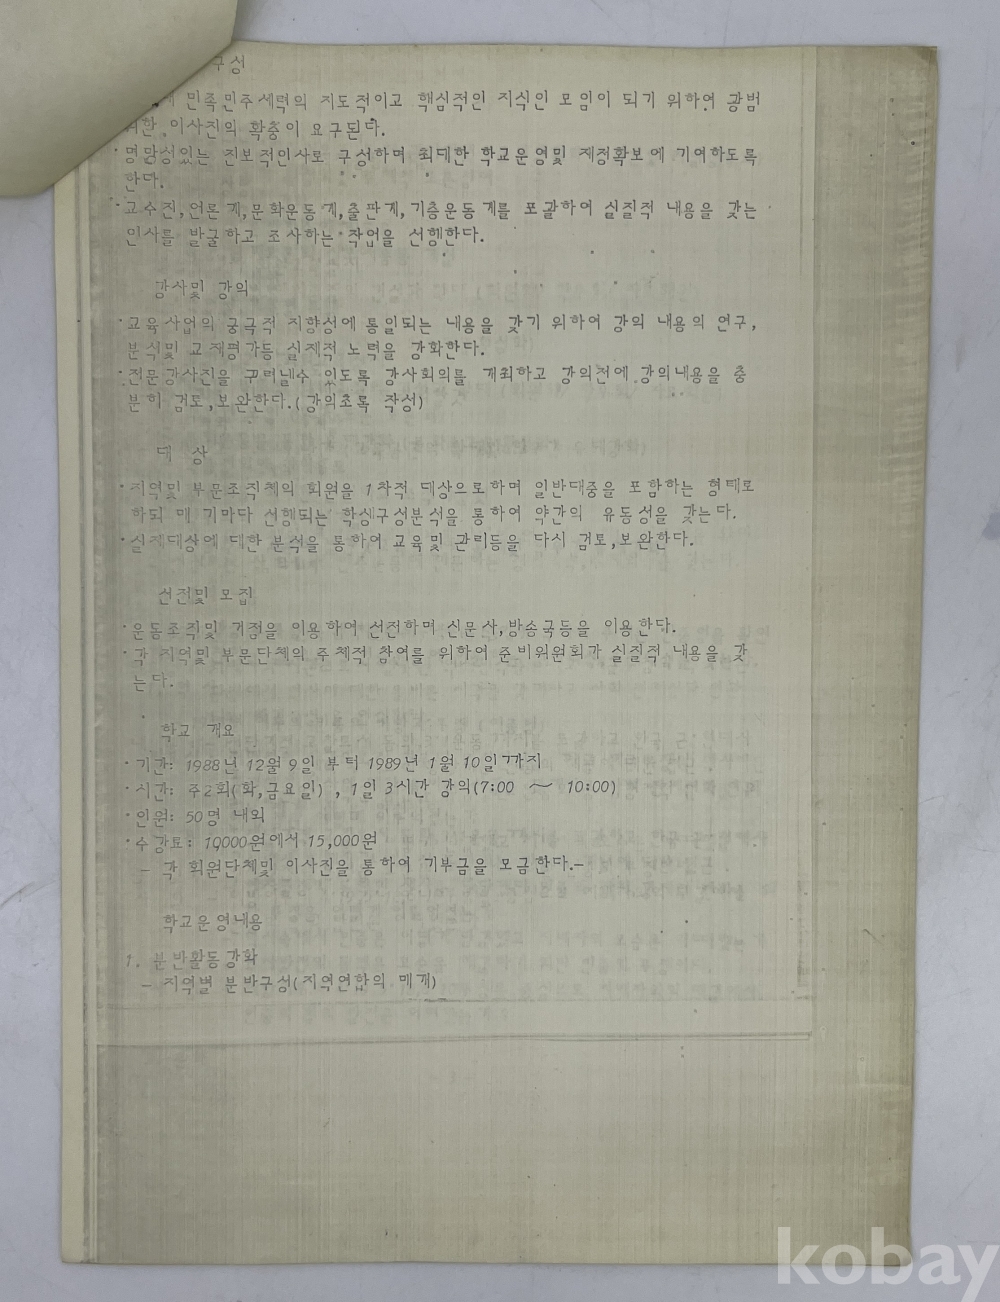 구성
민족민주세력의 지도적이고 핵심적인 지식인 모임이 되기 위하여 광범
위한 이사진의 확충이 요구된다.
·명망성있는 진보적인사로 구성하며 최대한 학교운영및 재정확보에 기여하도록
한다.
·교수진,언론계,문화운동계,출판계,기층운동계를 포괄하여 실질적 내용을 갖는
인사를 발굴하고 조사하는 작업을 선행한다.
강사및 강의
·교육사업의 궁극적 지향성에 통일되는 내용을 갖기 위하여 강의 내용의 연구,
분석및 교재평가등 실제적 노력을 강화한다.
·전문강사진을 꾸려낼수 있도록 강사회의를 개최하고 강의전에 강의내용을 충
분히 검토,보완한다.(강의초록 작성)
대 상
·지역및 부문조직체의 회원을 1차적 대상으로하며 일반대중을 포함하는 형태로
하되 매 기마다 선행되는 학생구성분석을 통하여 약간의 유동성을 갖는다.
·실제대상에 대한 분석을 통하여 교육및 관리등을 다시 검토,보완한다.
선전및 모집
·운동조직및 거점을 이용하여 선전하며 신문사,방송국등을 이용한다.
·각 지역및 부문단체의 주체적 참여를 위하여 준비위원회가 실질적 내용을 갖
는다.
학교 개요
·기간: 1988년 12월 9일 부터 1989년 1월 10일까지
·시간: 주2회(화,금요일) , 1일 3시간 강의(7:00 ～ 10:00)
·인원: 50명 내외
·수강료: 10000원에서 15,000원
- 각 회원단체및 이사진을 통하여 기부금을 모금한다.-
학교운영내용
1. 분반활동강화
- 지역별 분반구성(지역연합의 매개)
kobay